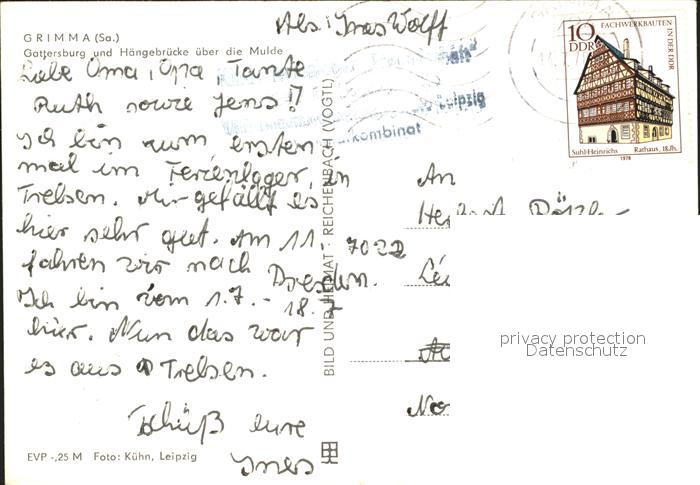 Abs.: Ines Wolff
GRIMMA (Sa.)
Gattersburg und Hängebrücke über die Mulde
Liebe Oma, Opa Tante
Ruth sowie Jens!!
Ich bin zum ersten
mal im Ferienlager in
Trebsen. Mir gefällt es
hier sehr gut. Am 11.
fahren wir nach Dresden.
Ich bin vom 1.7. - 18.7
hier. Nun das war
es aus Trebsen.
Tschüß eure
Ines
EVP -,25 M Foto: Kühn, Leipzig
BILD UND HEIMAT · REICHENBACH (VOGTL)
Leipzig
kombinat
10
DDR
FACHWERKBAUTEN
IN DER DDR
Suhl-Heinrichs Rathaus, 18.Jh.
1978
An
7022
privacy protection
Datenschutz